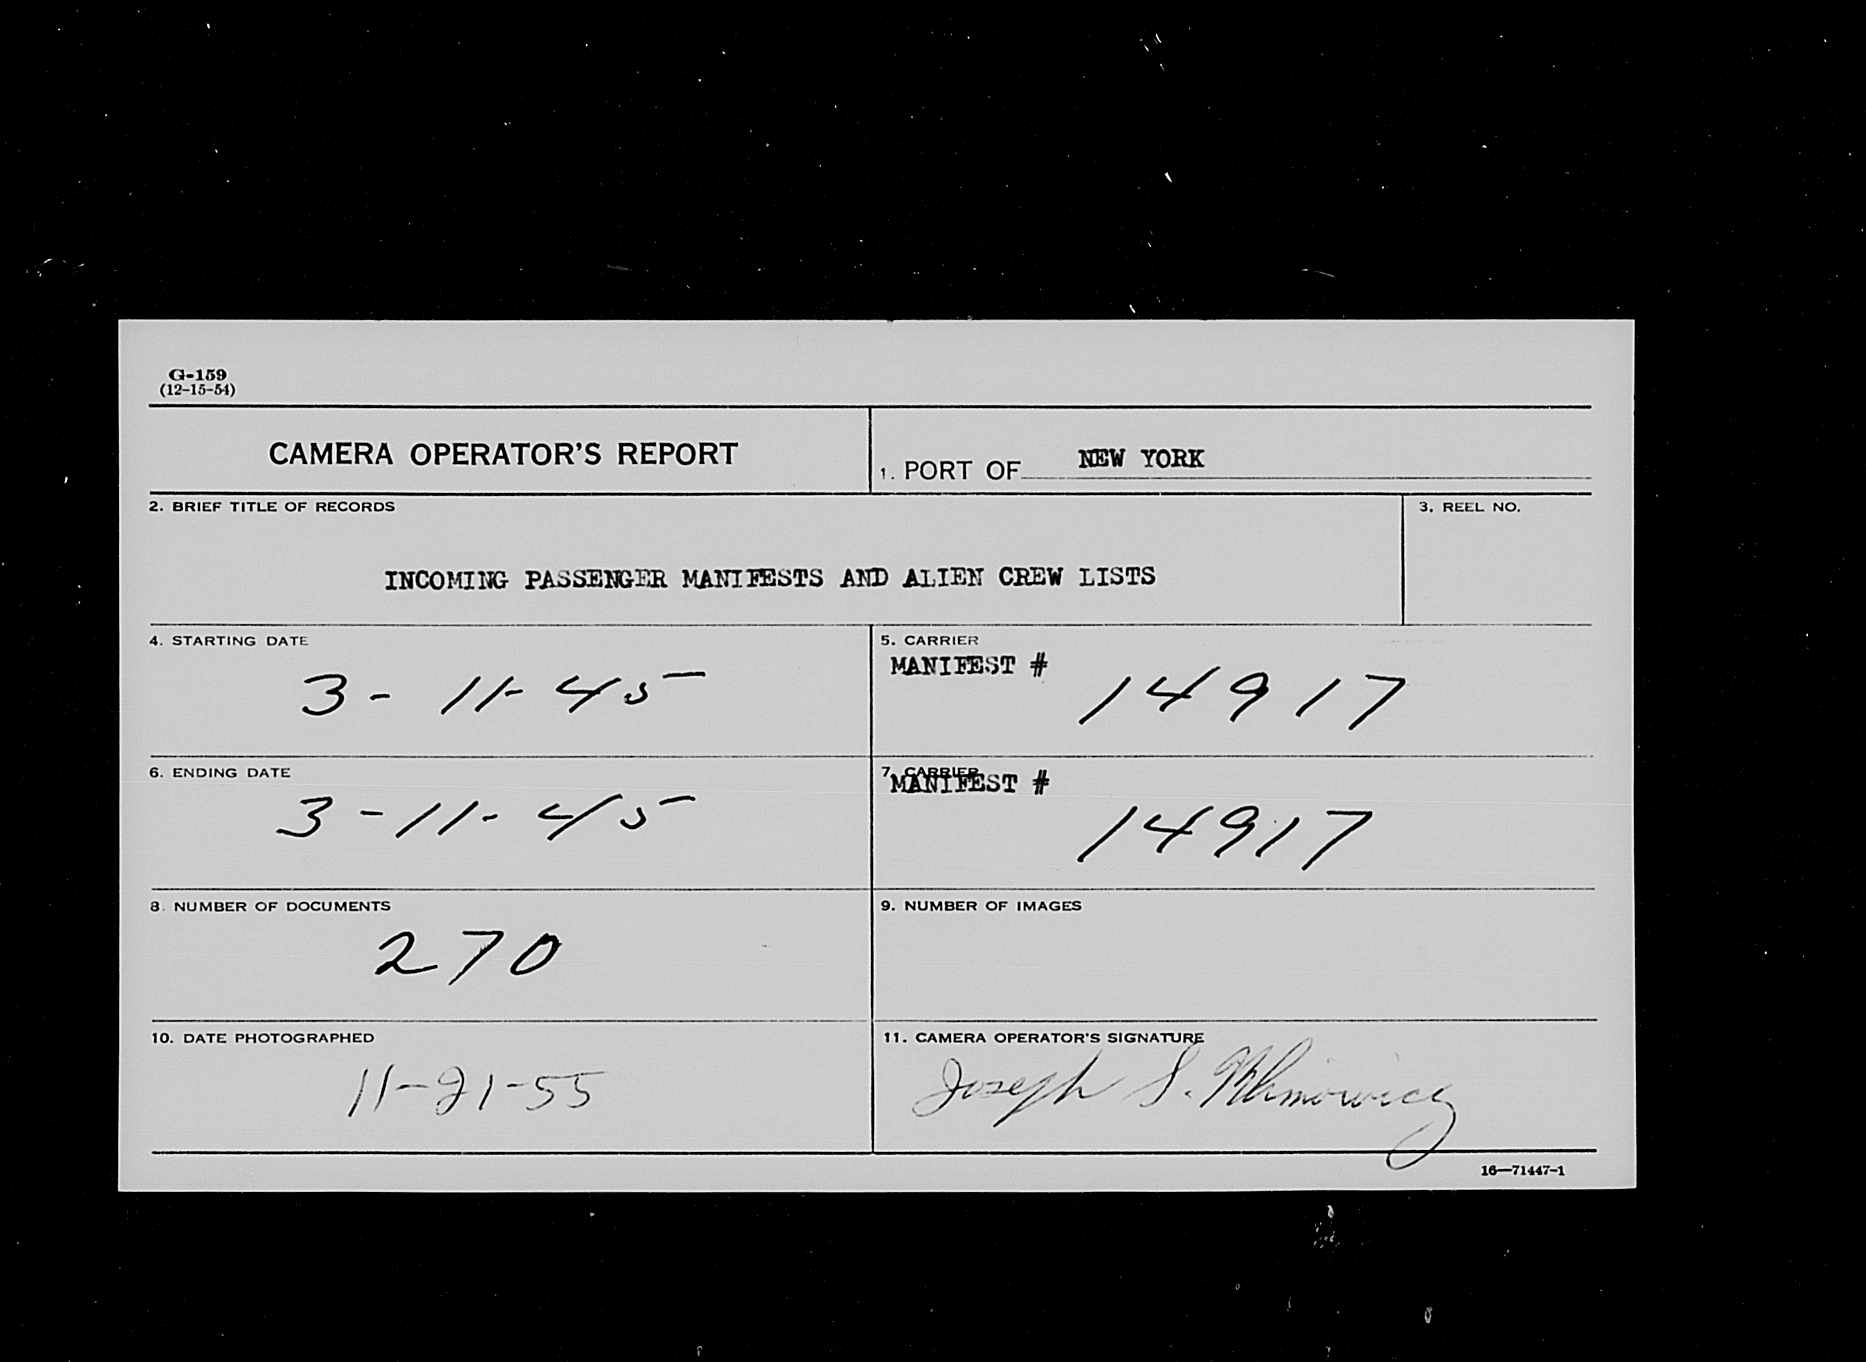 G-159
(12-15-54)
CAMERA OPERATOR'S REPORT
1. PORT OF NEW YORK
2. BRIEF TITLE OF RECORDS
3. REEL NO.
INCOMING PASSENGER MANIFESTS AND ALIEN CREW LISTS
4. STARTING DATE
3-11-45
5. CARRIER
MANIFEST #
14917
6. ENDING DATE
3-11-45
7. CARRIER
MANIFEST #
14917
8. NUMBER OF DOCUMENTS
270
9. NUMBER OF IMAGES
10. DATE PHOTOGRAPHED
11-21-55
11. CAMERA OPERATOR'S SIGNATURE
Joseph S. Klimowicz
16—71447-1